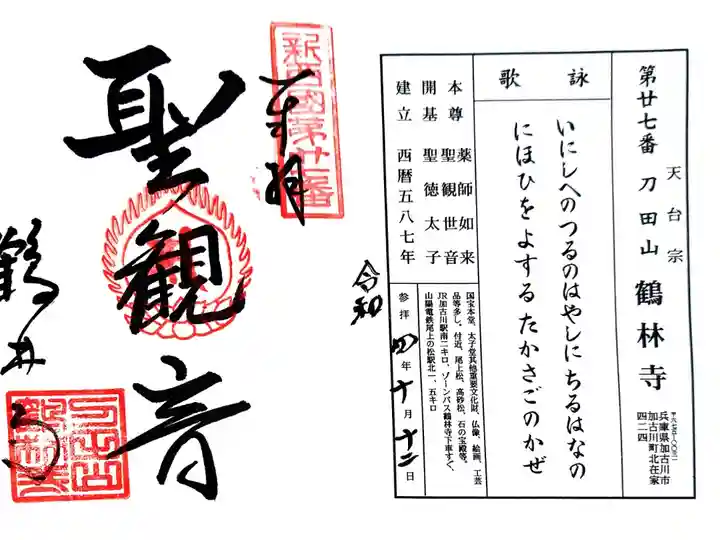 第廿七番 刀田山 鶴林寺
天台宗
兵庫県加古川市
加古川町北在家
四二四
詠歌
いにしへのつるのはやしにちるはなの
にほひをよするたかさごのかぜ
本尊 薬師如来
聖観世音
開基 聖徳太子
建立 西暦五八七年
国宝本堂、太子堂其他重要文化財、仏像、絵画、工芸
品等多し、付近、尾上松、高砂松、石の宝殿等。
JR加古川駅南二キロ、ゾーンバス鶴林寺下車すぐ、
山陽電鉄尾上の松駅北一、五キロ
令和
参拝 四年十月十二日
新西國第廿七番
奉拝
聖観音
鶴林寺